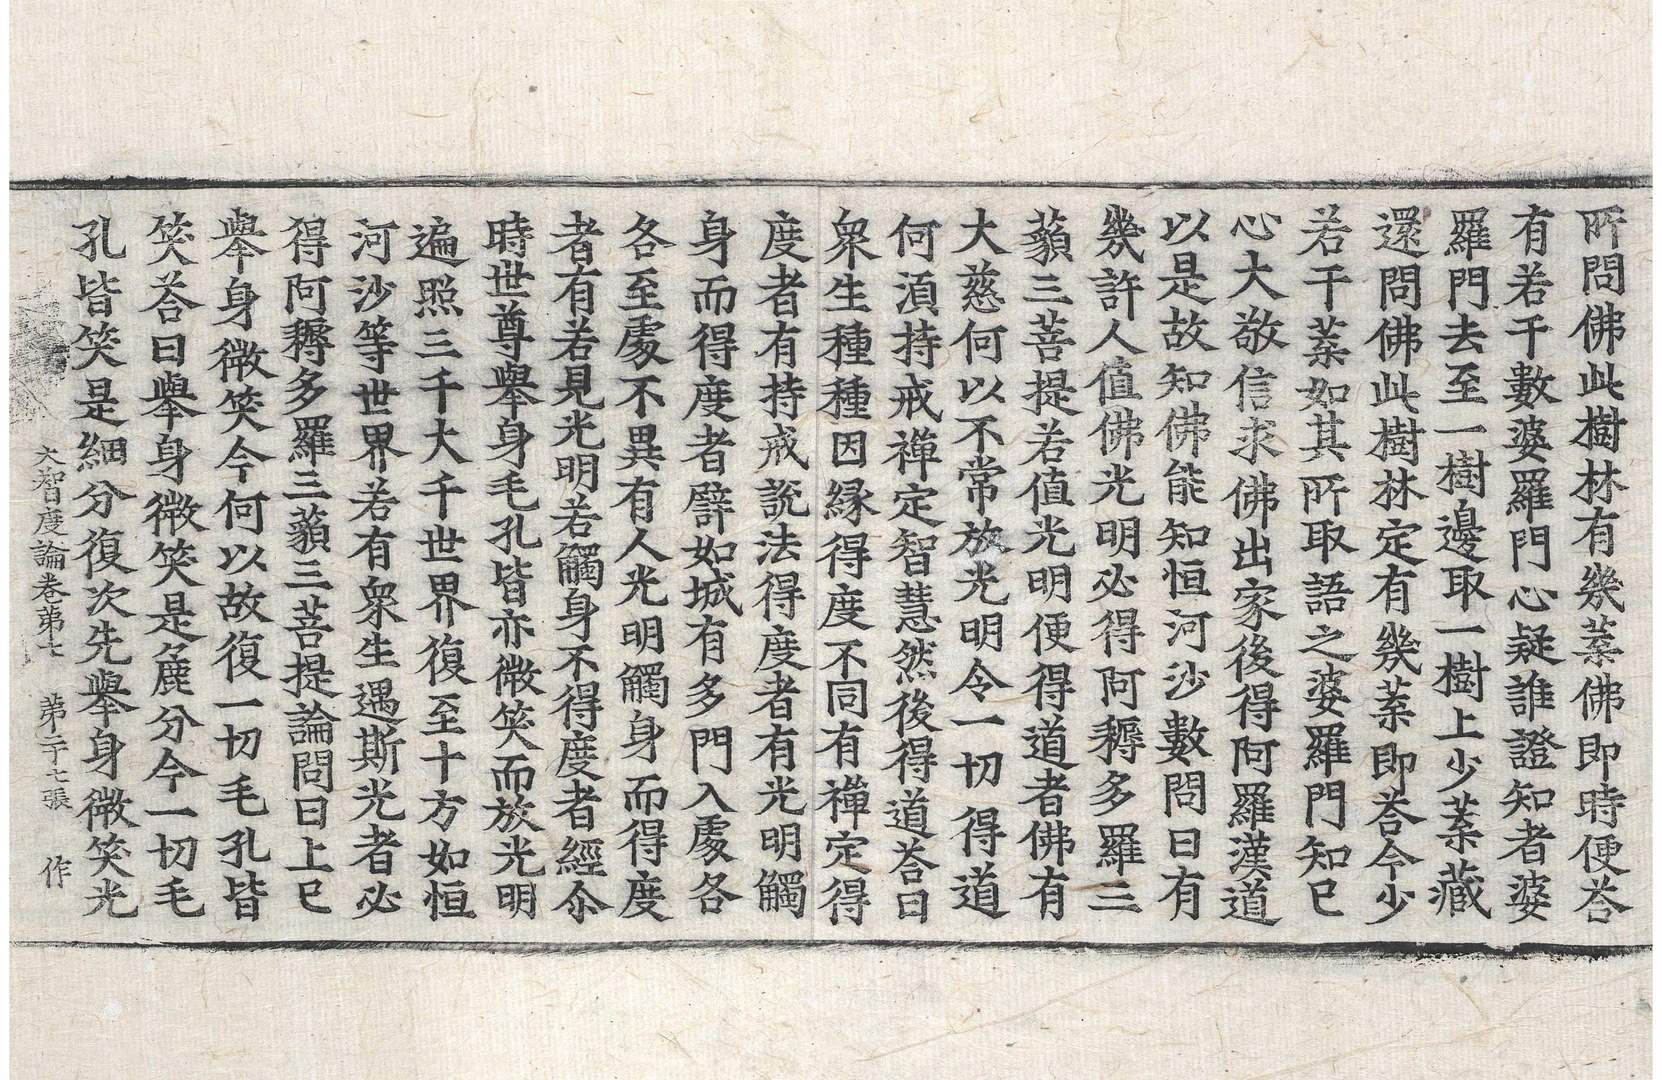 所問佛此樹林有幾葉佛即時便荅
有若干數婆羅門心疑誰證知者婆
羅門去至一樹邊取一樹上少葉藏
還問佛此樹林定有幾葉即荅今少
若干葉如其所取語之婆羅門知已
心大敬信求佛出家後得阿羅漢道
以是故知佛能知恒河沙數問曰有
幾許人值佛光明必得阿耨多羅三
藐三菩提若值光明便得道者佛有
大慈何以不常放光明令一切得道
何湏持戒禪定智慧然後得道荅曰
衆生種種因緣得度不同有禪定得
度者有持戒說法得度者有光明觸
身而得度者譬如城有多門入處各
各至處不異有人光明觸身而得度
者有若見光明若觸身不得度者經尒
時世尊舉身毛孔皆亦微笑而放光明
遍照三千大千世界復至十方如恒
河沙等世界若有衆生遇斯光者必
得阿耨多羅三藐三菩提論問曰上已
舉身微笑今何以故復一切毛孔皆
笑荅曰舉身微笑是麁分今一切毛
孔皆笑是細分復次先舉身微笑光
大智度論卷第七 第二十七張 作